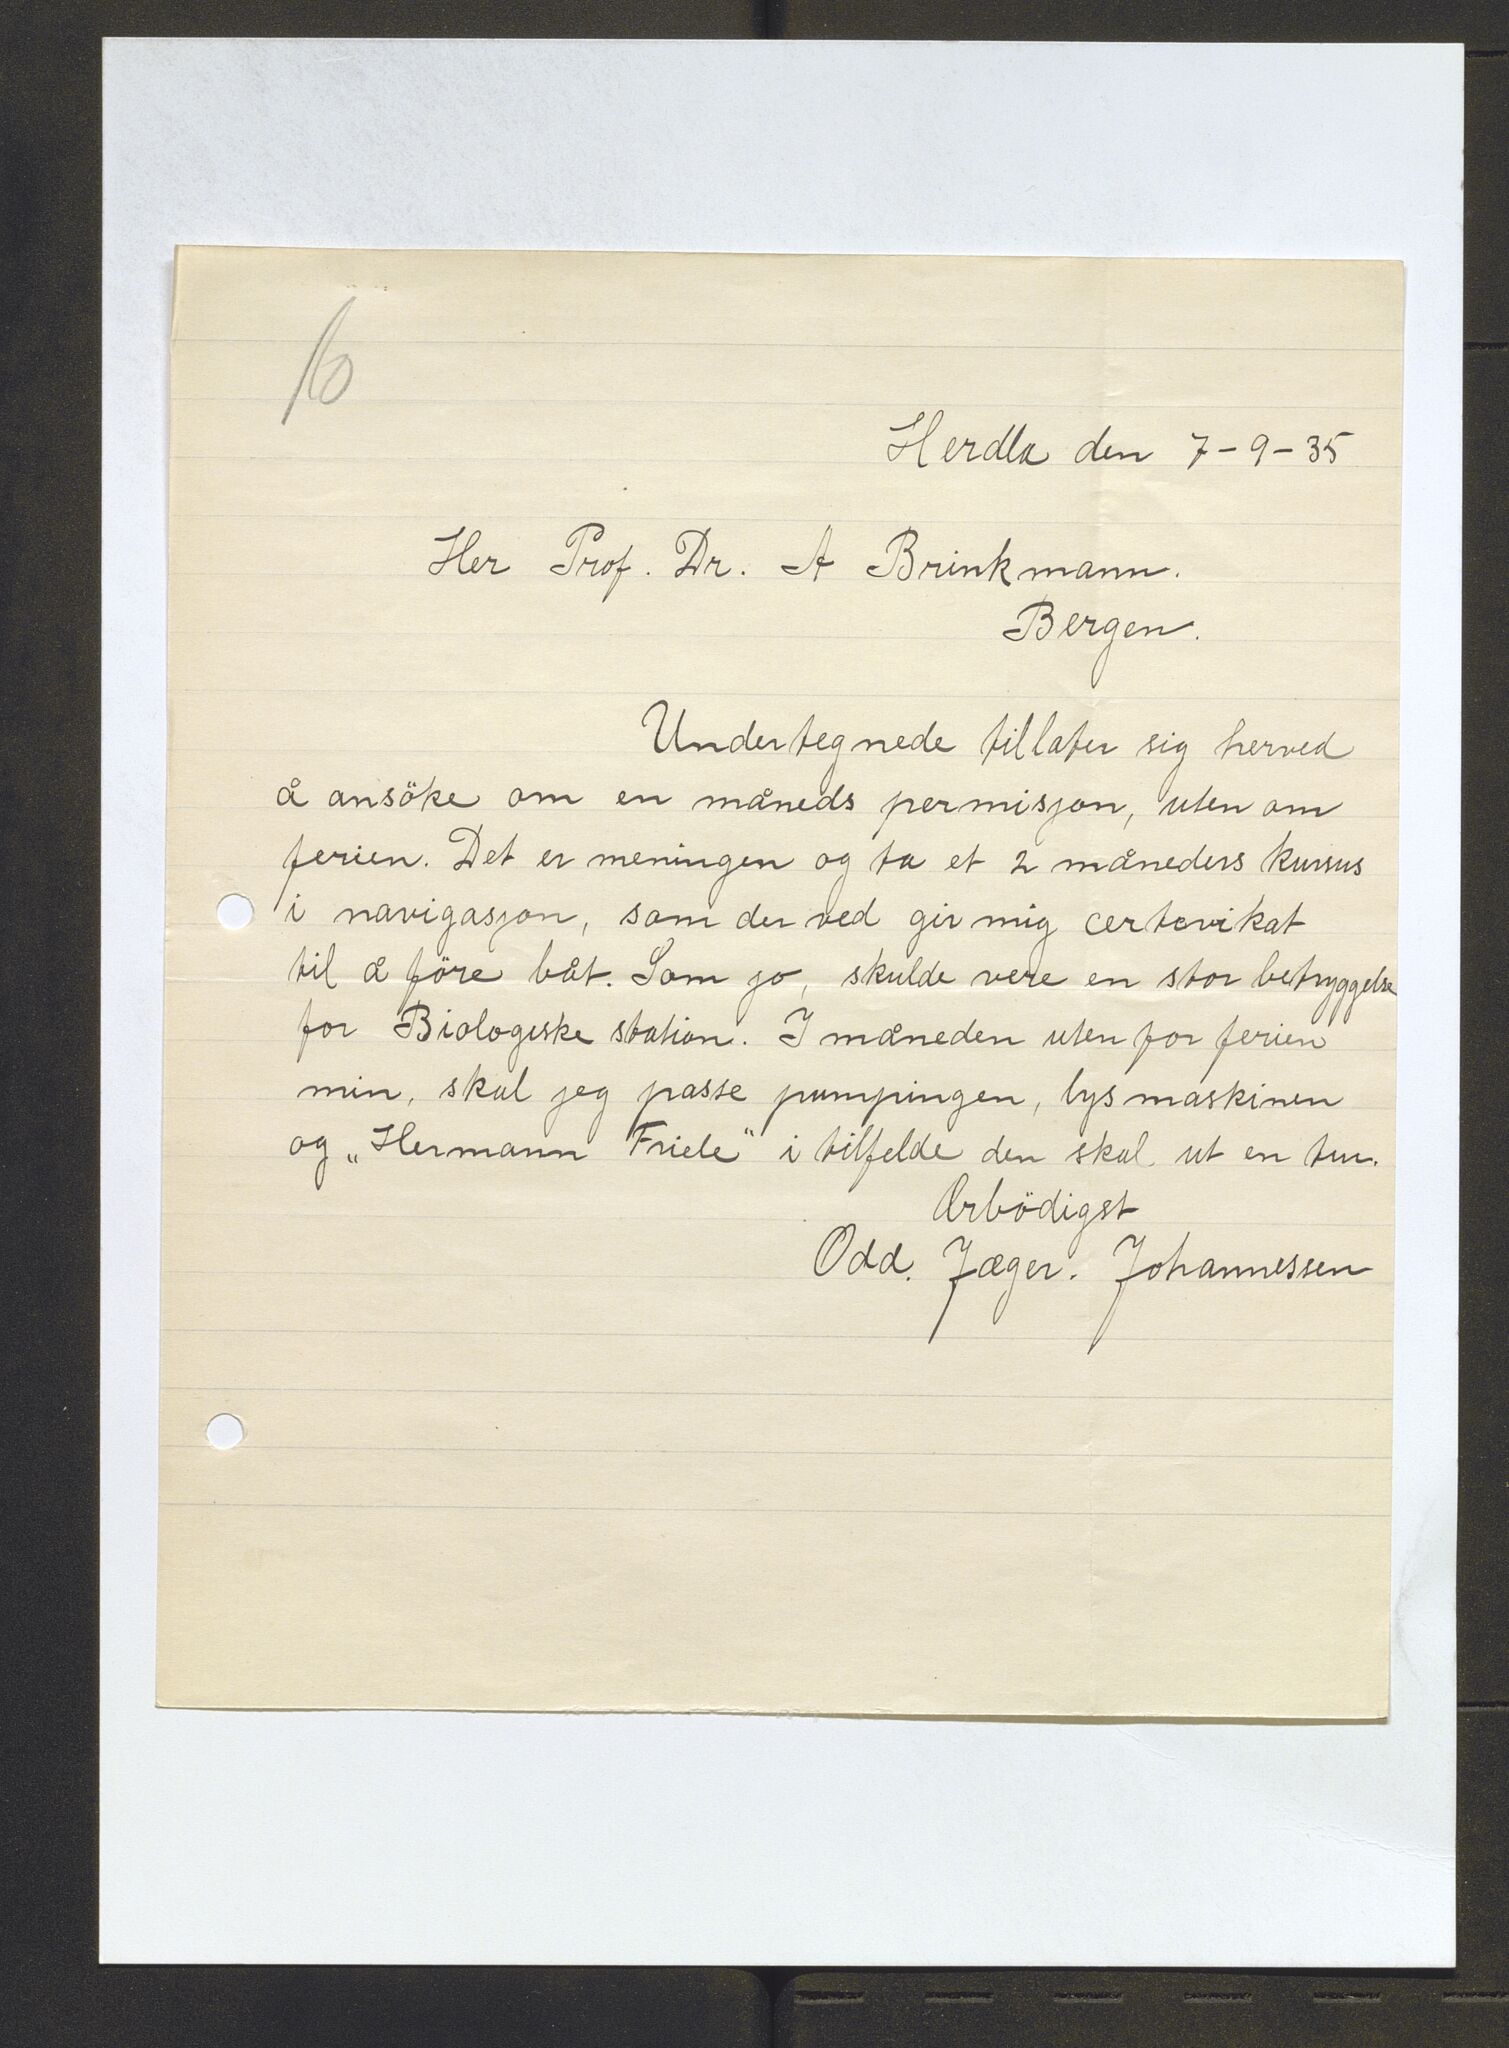 16
Herdla den 7-9-35
Her Prof. Dr. A Brinkmann.
Bergen.
Undertegnede tillater sig herved
å ansöke om en måneds permisjon, uten om
ferien. Det er meningen og ta et 2 måneders kursus
i navigasjon, som der ved gir mig certevikat
til å före båt. Som jo, skulde vere en stor betryggelse
for Biologiske station. I måneden uten for ferien
min, skal jeg passe pumpingen, lysmaskinen
og „Hermann Friele" i tilfelde den skal ut en tur.
Ærbödigst
Odd. Jæger. Johannessen